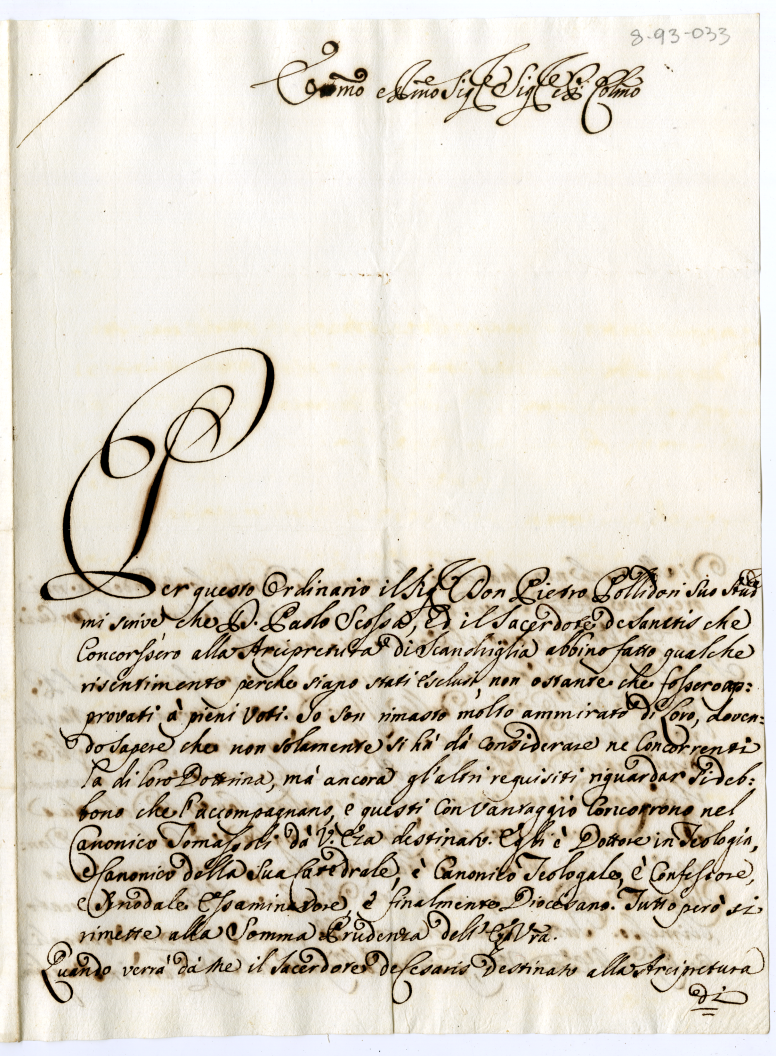 8-93-033
Emo e Rmo Sig.re Sig.re e P.ron Colmo
Per questo Ordinario il Sig.r Don Pietro Pollidori suo Aud.re
mi scrive che D. Paolo Scossa, ed il Sacerdote de Sanctis che
Concorsero alla Arcipretura di Scandriglia abbino fatto qualche
risentimento perche siano stati esclusi, non ostante che fossero ap:
provati à pieni voti. Io son rimasto molto ammirato di Loro, doven-
do sapere che non solamente si hà dà considerare ne Concorrenti
la di loro Dottrina, mà ancora gl'altri requisiti riguardar si deb:
bono che l'accompagnano, e questi con vantaggio Concorrono nel
Canonico Tomassetti dà V. Eza destinato. Egli è Dottore in Teologia,
è Canonico della Sua Catedrale, è Canonico Teologale, è Confessore,
e Sinodale Essaminatore, è finalmente Diocesano. Tutto però si
rimette alla Somma Prudenza dell' Eza Vra.
Quando verrà dà Me il Sacerdote de Cesaris destinato alla Arcipretura
di